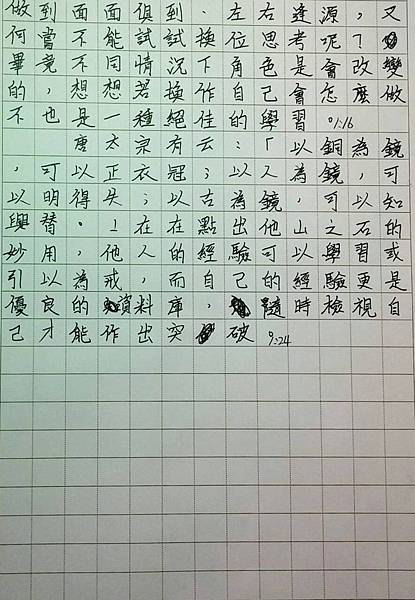 做到面面俱到、左右逢源，又
何嘗不能試試換位思考呢？
畢竟不同情況下角色是會改變
的，想想若換作自己會怎麼做
不也是一種絕佳的學習 9:16
唐太宗有云：「以銅為鏡
，可以正衣冠；以人為鏡，可
以明得失；以古為鏡，可以知
興替。」在在點出他山之石的
妙用，他人的經驗可以學習或
引以為戒，而自己的經驗更是
優良的資料庫，隨時檢視自
己才能作出突破 9:24